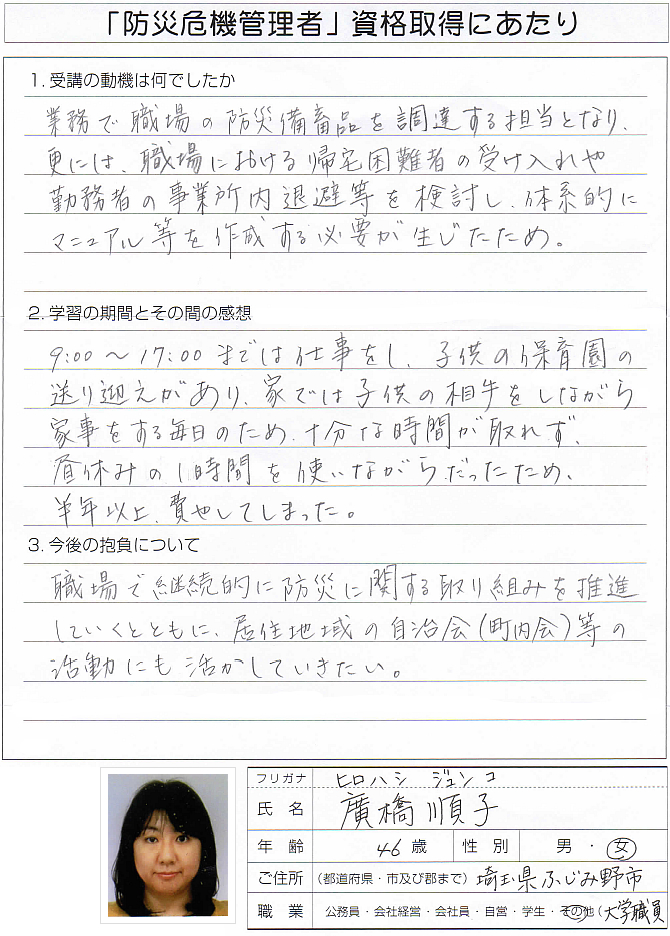 「防災危機管理者」資格取得にあたり
1. 受講の動機は何でしたか
業務で職場の防災備畜品を調達する担当となり、
更には、職場における帰宅困難者の受け入れや
勤務者の事業所内退避等を検討し、体系的に
マニュアル等を作成する必要が生じたため。
2. 学習の期間とその間の感想
9:00～17:00までは仕事をし、子供の保育園の
送り迎えがあり、家では子供の相手をしながら
家事をする毎日のため、十分な時間が取れず、
昼休みの1時間を使いながらだったため、
半年以上、費やしてしまった。
3. 今後の抱負について
職場で継続的に防災に関する取り組みを推進
していくとともに、居住地域の自治会(町内会)等の
活動にも活かしていきたい。
フリガナ ヒロハシ ジュンコ
氏名 廣橋順子
年齢 46歳 性別 男・女
ご住所 (都道府県・市及び郡まで) 埼玉県ふじみ野市
職業 公務員・会社経営・会社員・自営・学生・その他( 大学職員